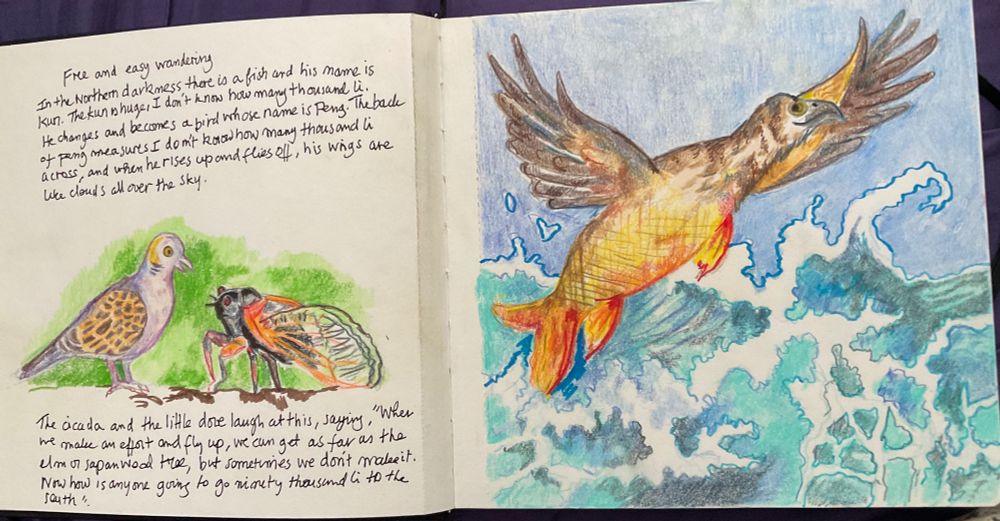 Free and easy wandering
In the Northern darkness there is a fish and his name is
Kun. The kun is huge, I don't know how many thousand li.
He changes and becomes a bird whose name is Peng. The back
of Peng measures I don't know how many thousand li
across, and when he rises up and flies off, his wings are
like clouds all over the sky.
The cicada and the little dove laugh at this, saying, "When
we make an effort and fly up, we can get as far as the
elm or sapanwood tree, but sometimes we don't make it.
Now how is anyone going to go ninety thousand li to the
south".